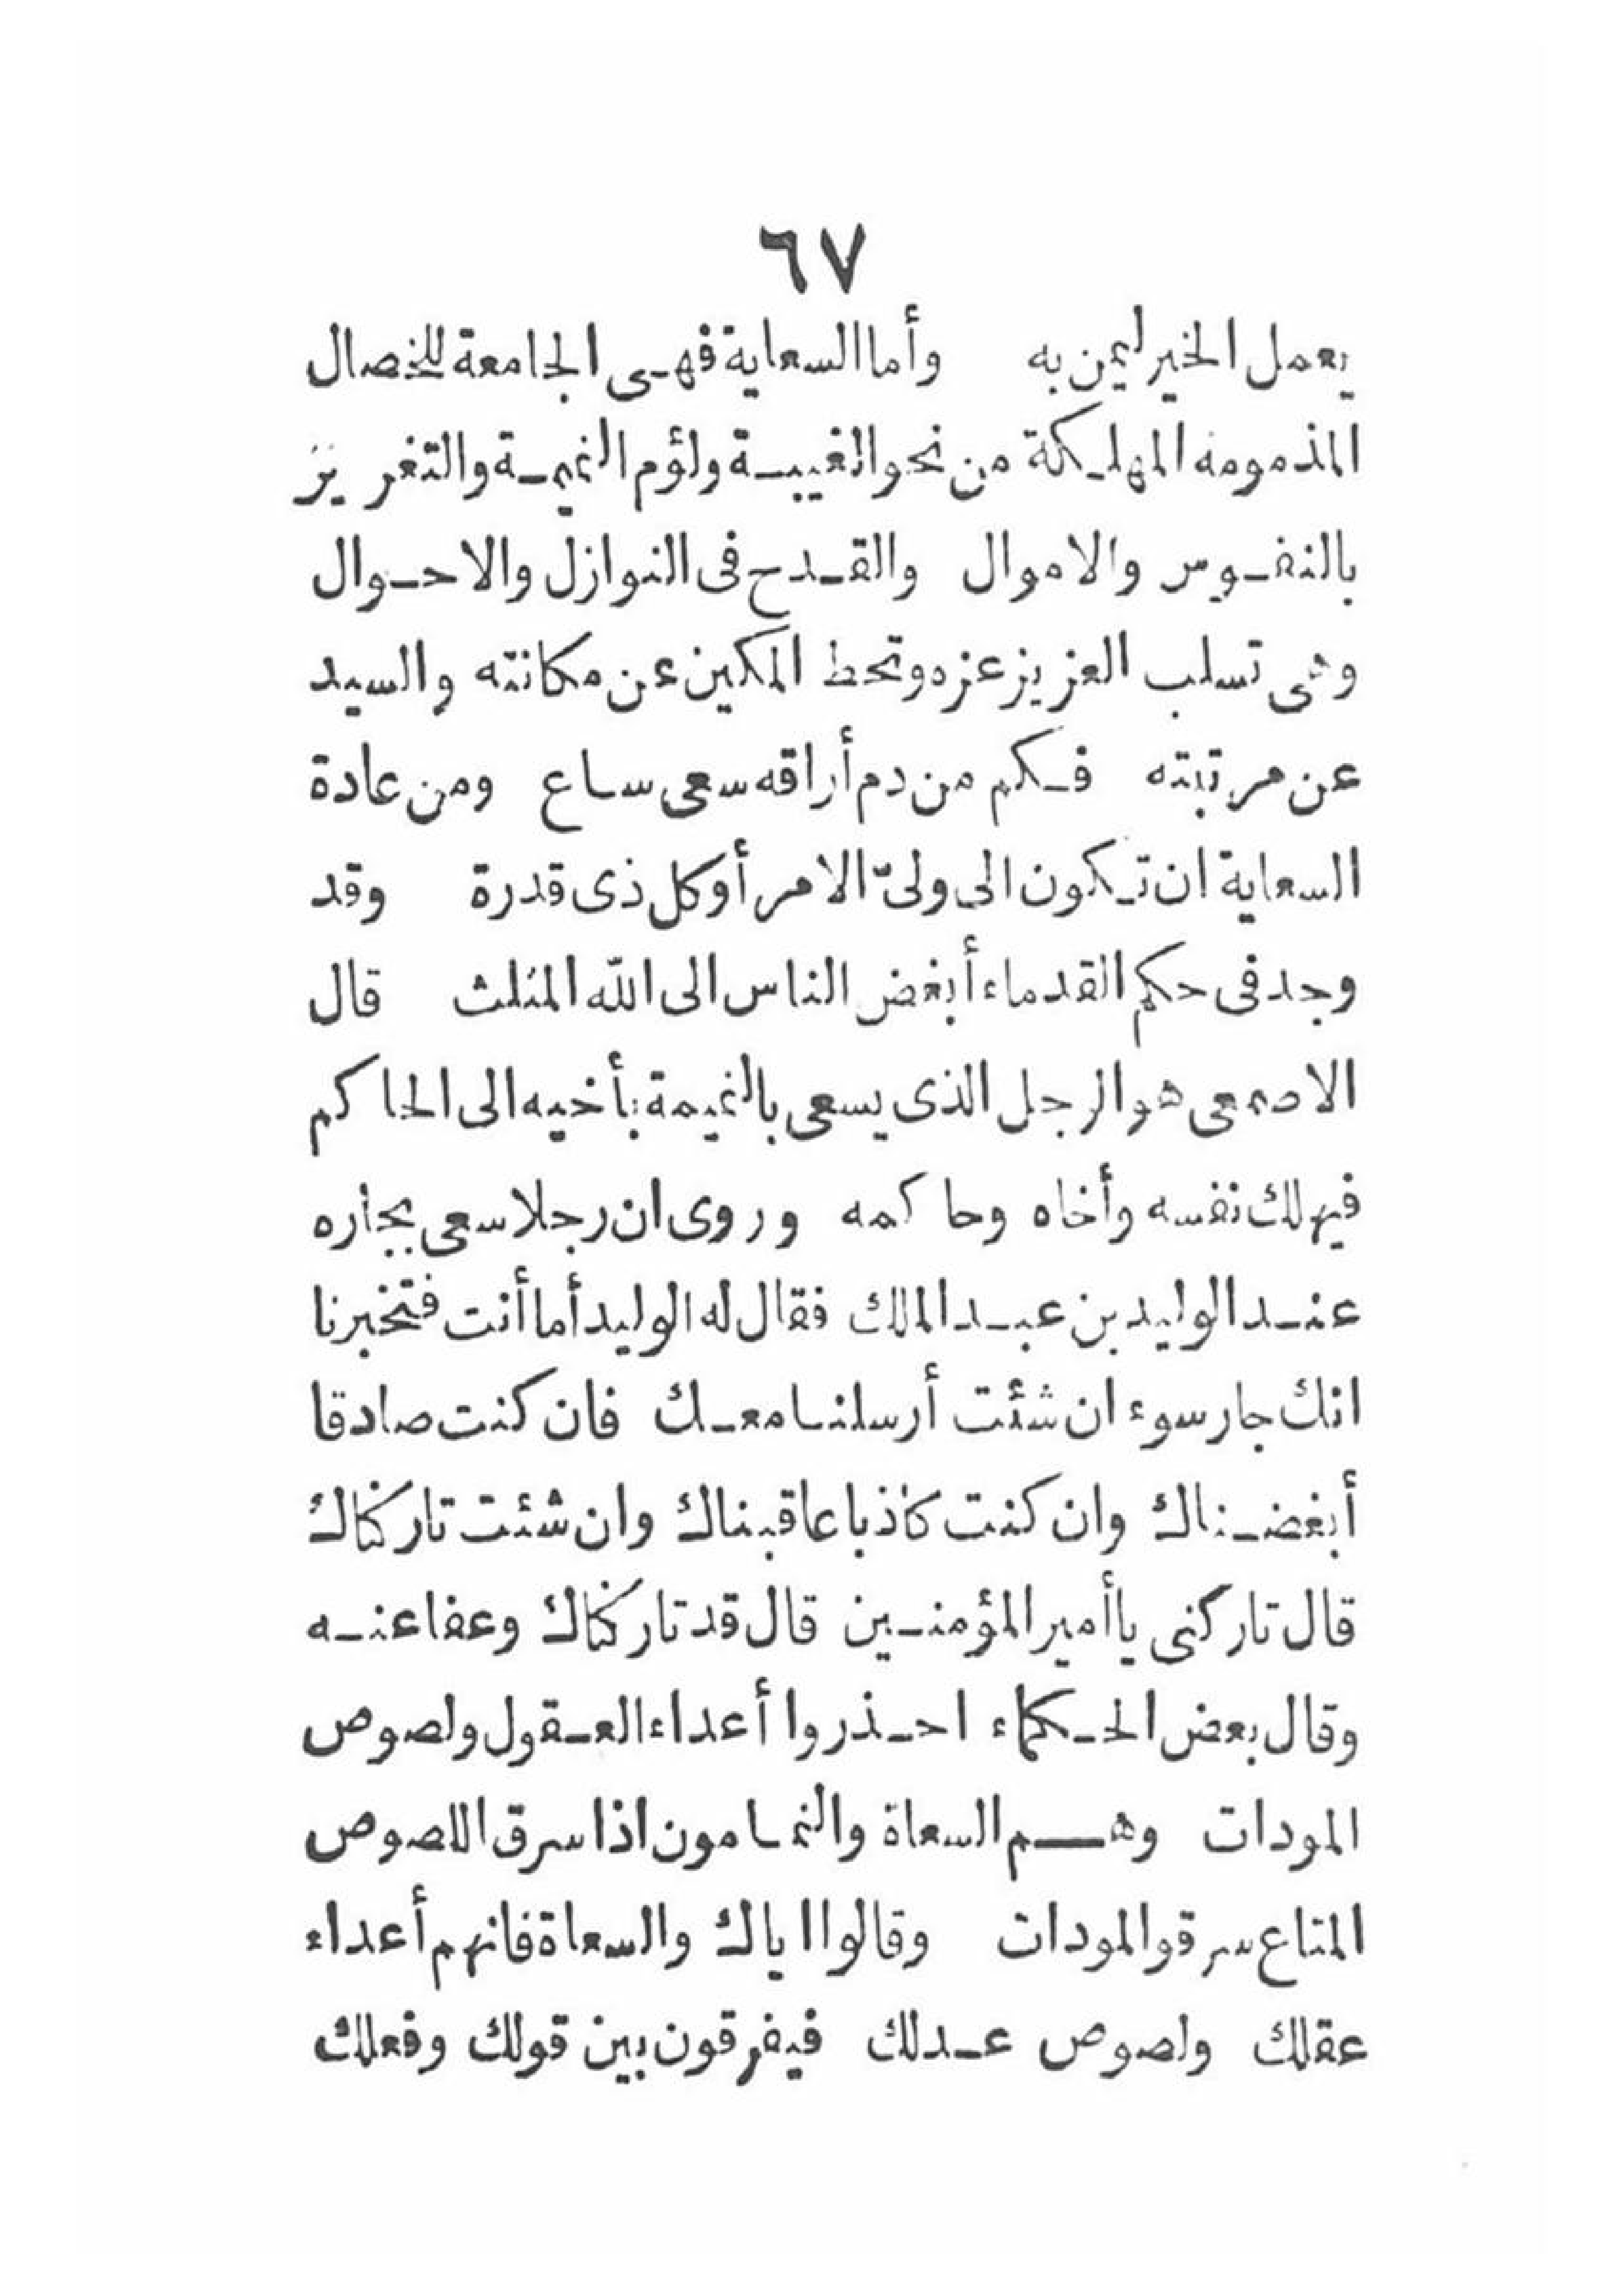 ٦٧
يعمل الخير ليمن به وأما السعاية فهى الجامعة للخصال
المذمومه المهلكة من نحو الغيبة ولؤم النميمة والتغرير
بالنفوس والاموال والقدح فى النوازل والاحوال
وهى تسلب العزيز عزه وتحط المكين عن مكانته والسيد
عن مرتبته فكم من دم أراقه سعى ساع ومن عادة
السعاية ان تكون الى ولىّ الامر أو كل ذى قدرة وقد
وجد فى حكم القدماء أبغض الناس الى الله المثلث قال
الاصمعى هو الرجل الذى يسعى بالنميمة بأخيه الى الحاكم
فيهلك نفسه وأخاه وحاكمه وروى ان رجلا سعى بجاره
عند الوليد بن عبد الملك فقال له الوليد أما أنت فتخبرنا
انك جار سوء ان شئت أرسلنا معك فان كنت صادقا
أبغضناك وان كنت كاذبا عاقبناك وان شئت تاركناك
قال تاركنى يا أمير المؤمنين قال قد تاركناك وعفا عنه
وقال بعض الحكماء احذروا أعداء العقول ولصوص
المودات وهم السعاة والنمامون اذا سرق اللصوص
المتاع سرقوا المودات وقالوا اياك والسعاة فانهم أعداء
عقلك ولصوص عدلك فيفرقون بين قولك وفعلك